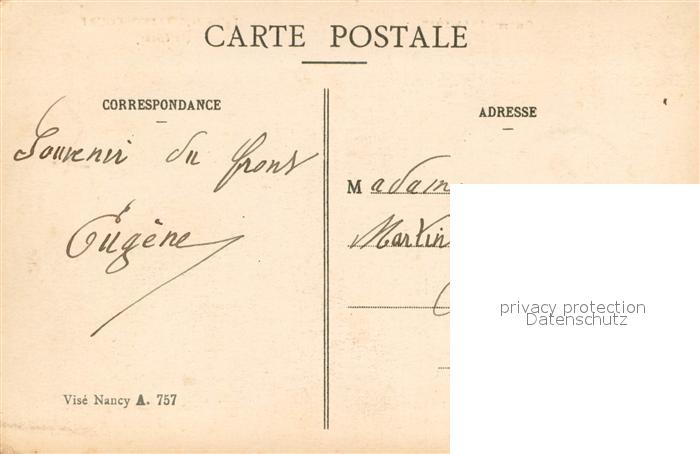 CARTE POSTALE
CORRESPONDANCE
Souvenir du front
Eugène
Visé Nancy A. 757
ADRESSE
Madam
Martin
privacy protection
Datenschutz